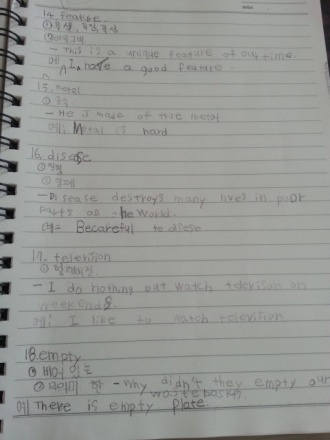 14. feature
- This is a unique feature of our time.
예 I have a good feature.
15. metal
- He is made of the metal
예: Metal is hard
16. disease
- Disease destroys many lives in poor
parts of the world.
예: Becareful to diese
17. television
- I do nothing but watch television on
weekends.
예: I like to watch television
18. empty
① 비어 있는
② - Why didn't they empty our
wastebasket.
예 There is empty plate.